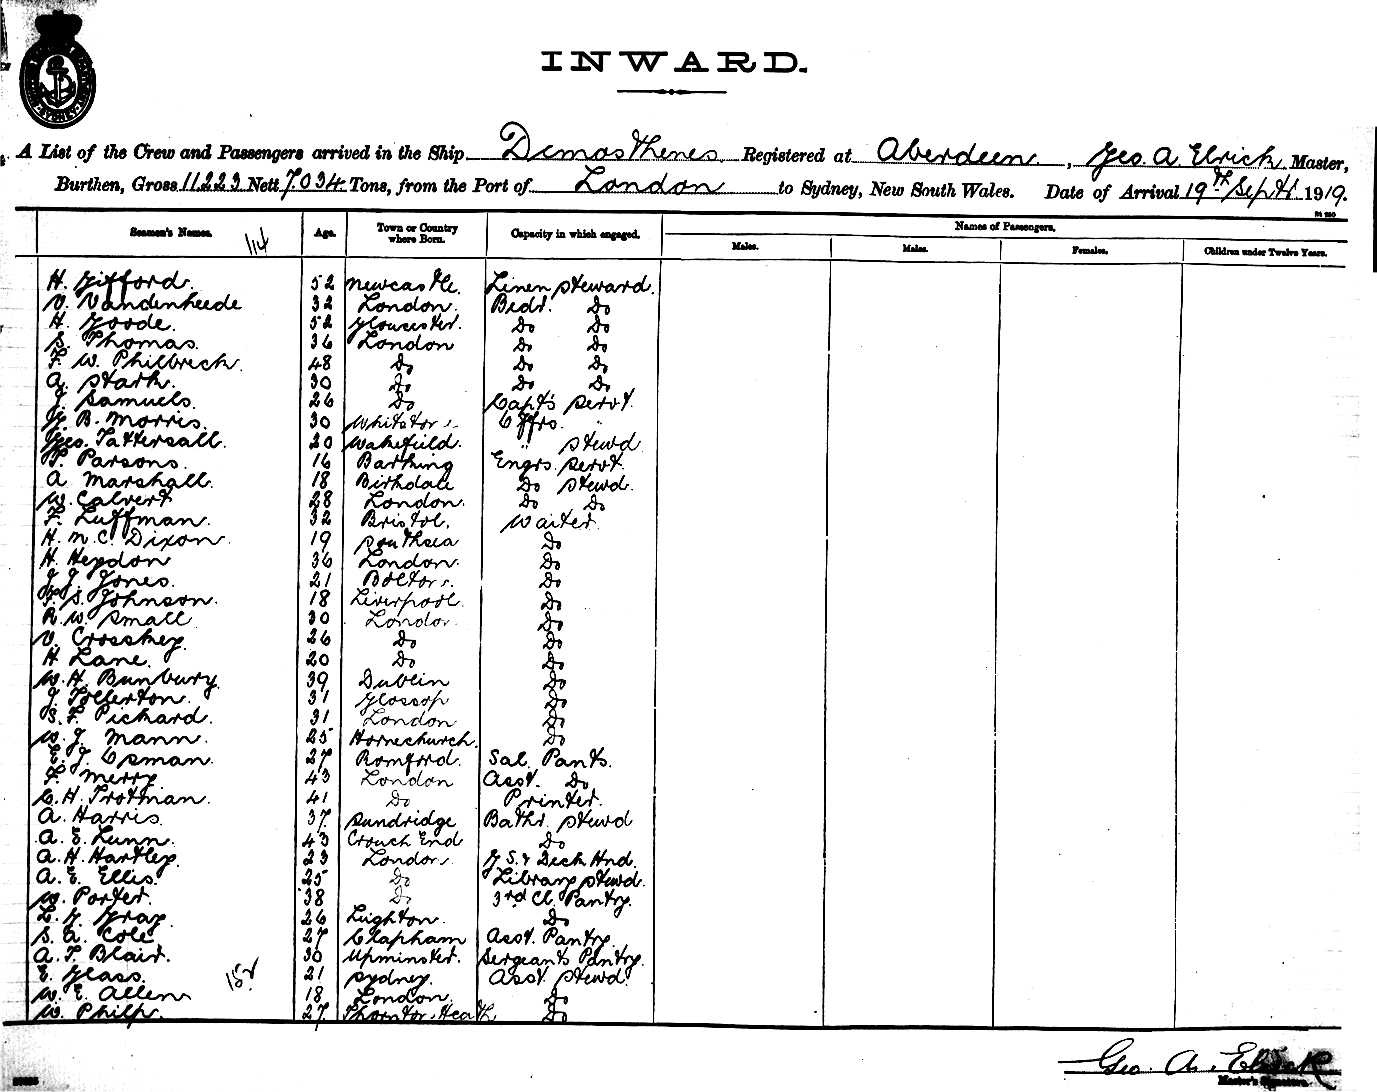 INWARD.
A List of the Crew and Passengers arrived in the Ship Demosthenes Registered at Aberdeen, Geo. A Elrick Master,
Burthen, Gross 11.223 Nett 7.034 Tons, from the Port of London to Sydney, New South Wales. Date of Arrival 19th Sept. 1919.
Seamen's Names. 114 Age. Town or Country where Born. Capacity in which engaged. Names of Passengers.
Males. Males. Females. Children under Twelve Years.
H. Gifford. 52 Newcastle. Linen Steward.
V. Vandenheede 32 London. Bedr. Do
H. Goode. 52 Gloucester. Do Do
S. Thomas. 36 London Do Do
F. W. Philbrick. 48 Do Do Do
A. Stark. 30 Do Do Do
J. Samuels. 26 Do Capt's Servt.
B. Morris. 30 Offrs. "
Geo. Tattersall. 20 Wakefield. " Stewd
T. Parsons. 16 Barking Engrs. Servt.
A Marshall. 18 Birkdale Do Stewd.
W. Calvert 28 London. Do Do
F. Luffman. 32 Bristol. Waiter.
H. M. C. Dixon. 19 Southsea Do
H. Heydon 36 London. Do
J. J. Jones. 21 Bolton. Do
S. Johnson. 18 Liverpool. Do
R. W. Small 30 London. Do
V. Crosskey. 26 Do Do
H Lane. 20 Do Do
W. H. Bunbury. 39 Dublin Do
J. Tollerton. 31 Glossop Do
S. F. Pickard. 31 London Do
W. J. Mann. 25 Hornchurch. Do
E. J. Osman. 27 Romford. Sal. Pantr.
F. Merry 43 London Asst. Do
C. H. Trotman. 41 Do Printer.
A. Harris. 37. Sundridge Bathr. Stewd
A. E. Lunn. 43 Crouch End Do
A. H. Hartley. 23 London. G. S. & Deck Hnd.
A. E. Ellis. 25 Do Library Stewd.
W. Porter. 38 Do 3rd Cl. Pantry.
L. G. Gray. 26 Leighton. Do
S. A. Cole 27 Clapham Asst. Pantry.
A. T. Blair. 30 Upminster. Sergeants Pantry.
E. Glass. 152 21 Sydney. Asst. Stewd.
W. E. Allen 18 London. Do
W. Philp. 27. Thornton Heath Do
Geo. A. Elrick
Master's Signature.